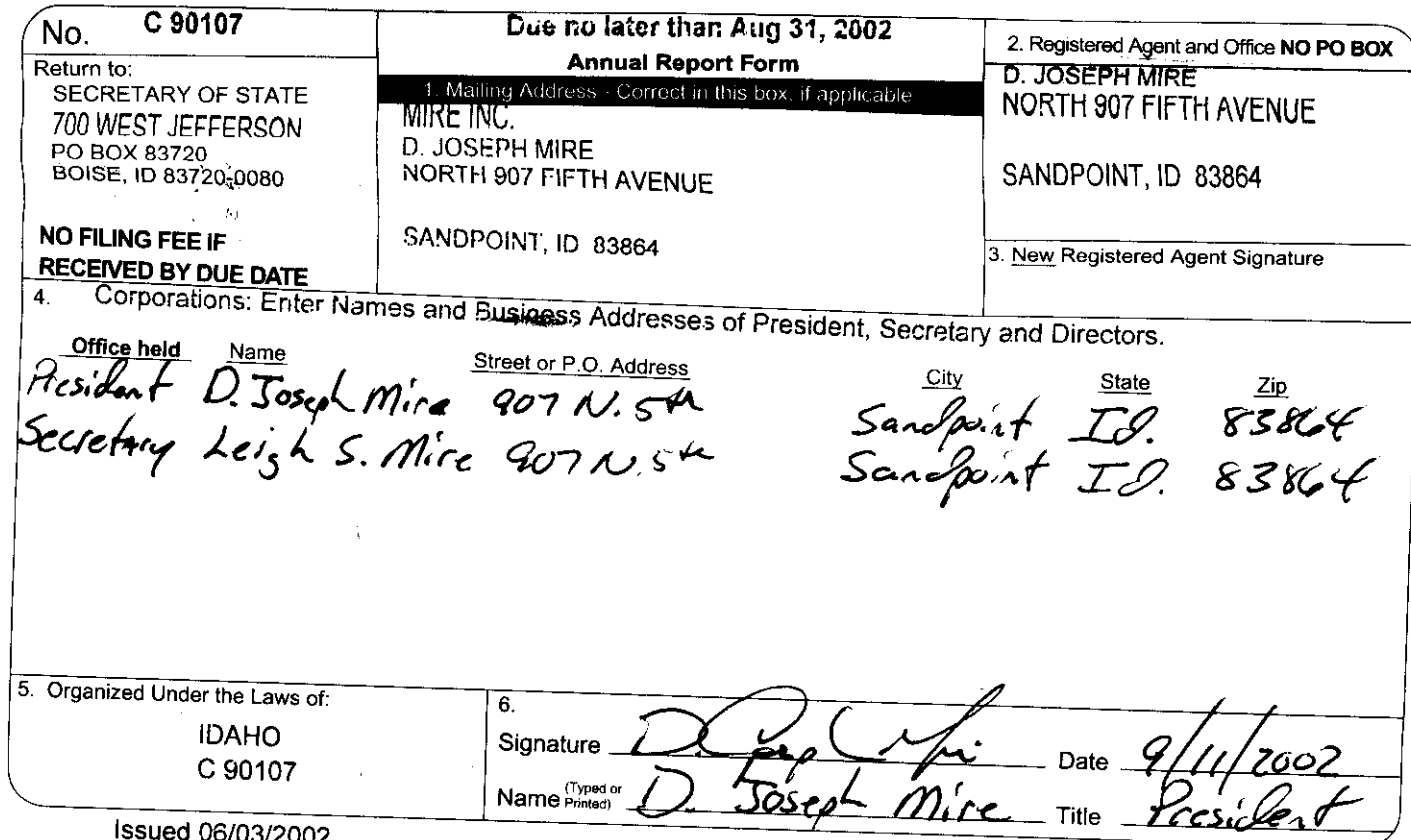 No. C 90107
Return to:
SECRETARY OF STATE
700 WEST JEFFERSON
PO BOX 83720
BOISE, ID 83720-0080
NO FILING FEE IF
RECEIVED BY DUE DATE
Due no later than Aug 31, 2002
Annual Report Form
1. Mailing Address - Correct in this box, if applicable
MIRE INC.
D. JOSEPH MIRE
NORTH 907 FIFTH AVENUE
SANDPOINT, ID 83864
2. Registered Agent and Office NO PO BOX
D. JOSEPH MIRE
NORTH 907 FIFTH AVENUE
SANDPOINT, ID 83864
3. New Registered Agent Signature
4. Corporations: Enter Names and Business Addresses of President, Secretary and Directors.
Office held Name Street or P.O. Address City State Zip
President D. Joseph Mire 907 N. 5th Sandpoint Id. 83864
Secretary Leigh S. Mire 907 N. 5th Sandpoint Id. 83864
5. Organized Under the Laws of:
IDAHO
C 90107
6.
Signature D. Joseph Mire Date 9/11/2002
Name (Typed or Printed) D. Joseph Mire Title President
Issued 06/03/2002